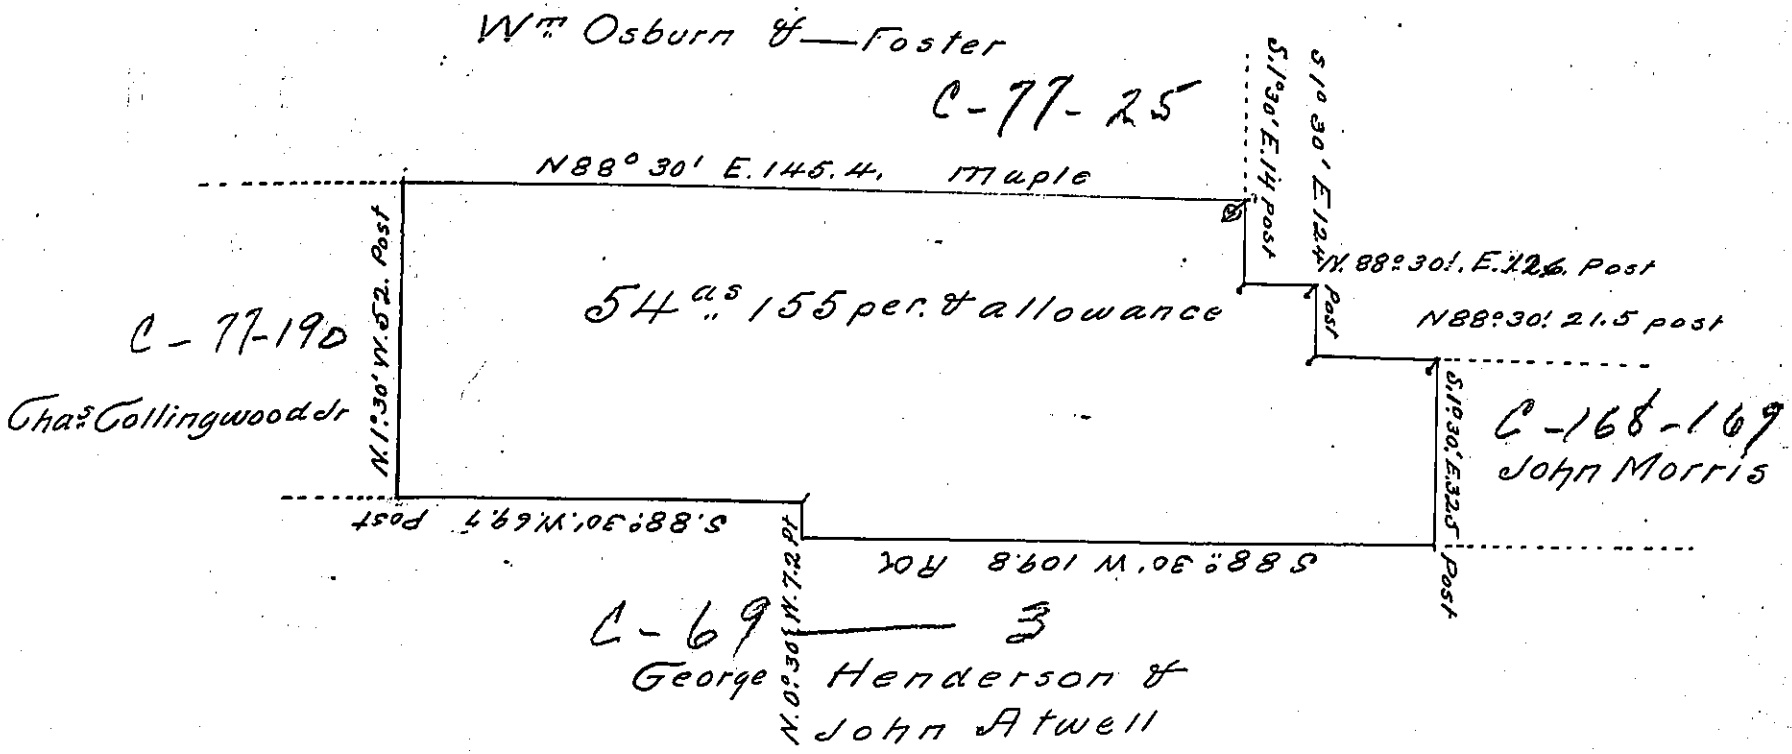 Wm Osburn & — Foster
C-77-25
N88° 30' E. 145.4. Maple
S.1°30' E.14 Post
S 1° 30' E 12.4 Post
N. 88° 30'. E. 12.6. Post
N88° 30! 21.5 post
54 as 155 per. & allowance
C-77-190
Chas Collingwood Jr
N.1°.30' W.52. Post
S.1°.30.'E.32.5 Post
C-168-169
John Morris
S.88°.30'.W.69.7 Post
N.0°.30' W.7.2 Pt
S 88° 30' W 109.8
C-69 — 3
George Henderson &
John Atwell